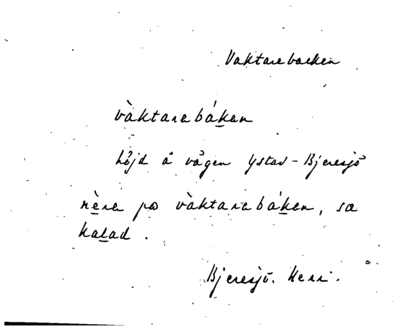 Vaktarebacken
vàktarabákan
höjd å vägen Ystad - Bjeresjö
nèra po vàktarabákan, sa
kalad.
Bjeresjö. Herr.